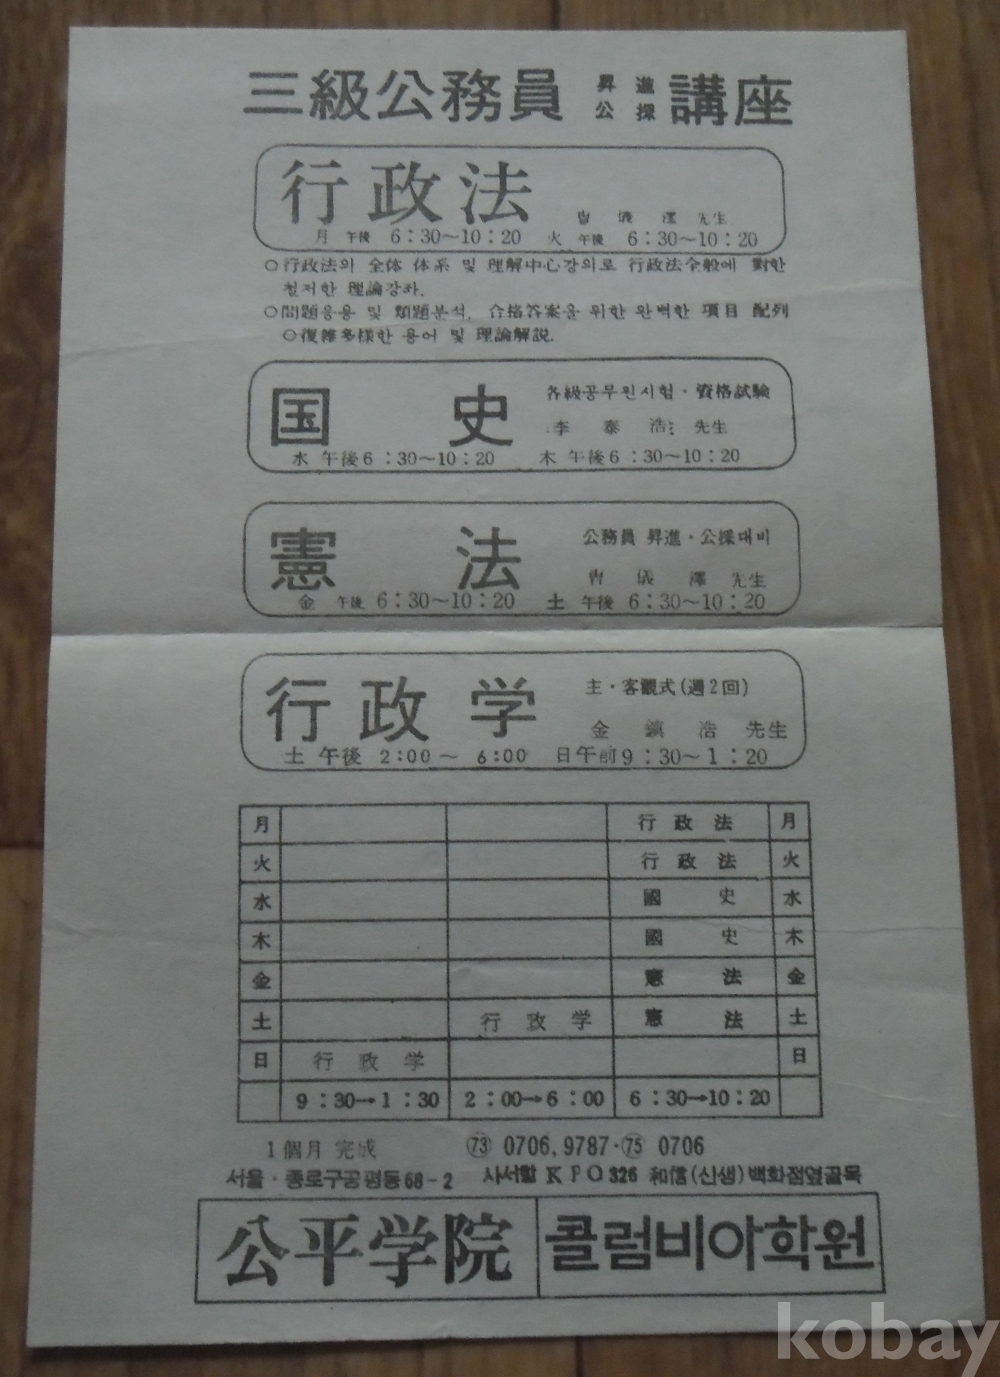 三級公務員 昇進 公採 講座
行政法
儀澤 先生
月 午後 6:30~10:20 火 午後 6:30~10:20
○行政法의 全体 体系 및 理解中心강의로 行政法全般에 對한
철저한 理論강좌.
○問題응용 및 類題분석, 合格答案을 위한 완벽한 項目 配列
○復雜多様한 용어 및 理論解説.
国史
各級공무원시험·資格試驗
李泰浩 先生
水 午後 6:30~10:20 木 午後 6:30~10:20
憲法
公務員 昇進·公採대비
儀澤 先生
金 午後 6:30~10:20 土 午後 6:30~10:20
行政学
主·客觀式(週2回)
金鎭浩 先生
土 午後 2:00~6:00 日午前 9:30~1:20
月 行政法 月
火 行政法 火
水 國史 水
木 國史 木
金 憲法 金
土 行政学 憲法 土
日 行政学 日
9:30→1:30 2:00→6:00 6:30→10:20
1個月 完成 ㊆ 0706, 9787·0706
서울·종로구공평동68-2 사서함 KPO326 和信(신생)백화점옆골목
公平学院 콜럼비아학원
kobay